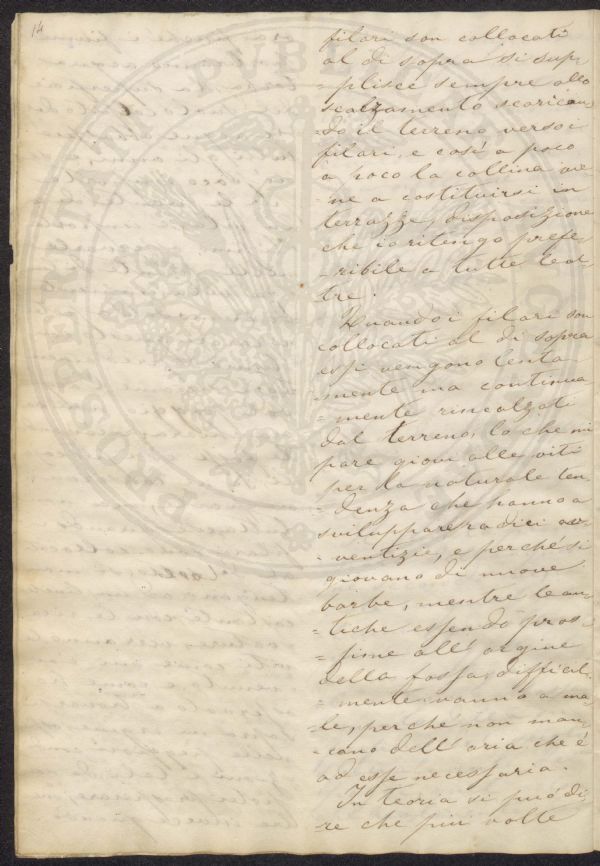 14
filari son collocati
al di sopra si sup-
=plisce sempre allo
scalzamento scarican-
=do il terreno verso i
filari, e così a poco
a poco la collina vie
=ne a costituirsi in
terrazze, disposizione
che io ritengo prefe-
=ribile a tutte le al-
tre.
Quando i filari son
collocati al di sopra
essi vengono lenta
=mente ma continua
=mente rincalzati
dal terreno, lo che mi
pare giovi alle viti
per la naturale ten
=denza che hanno a
sviluppare radici av-
=ventizie, e perchè si
giovano di nuove
barbe, mentre le an-
=tiche essendo pros-
=sime all' argine
della fossa, difficil-
=mente vanno a ma-
le, perchè non man-
=cano dell' aria che è
ad esse necessaria.
In teoria si può di
re che più volte
PROSPERITATI PUBLICAE